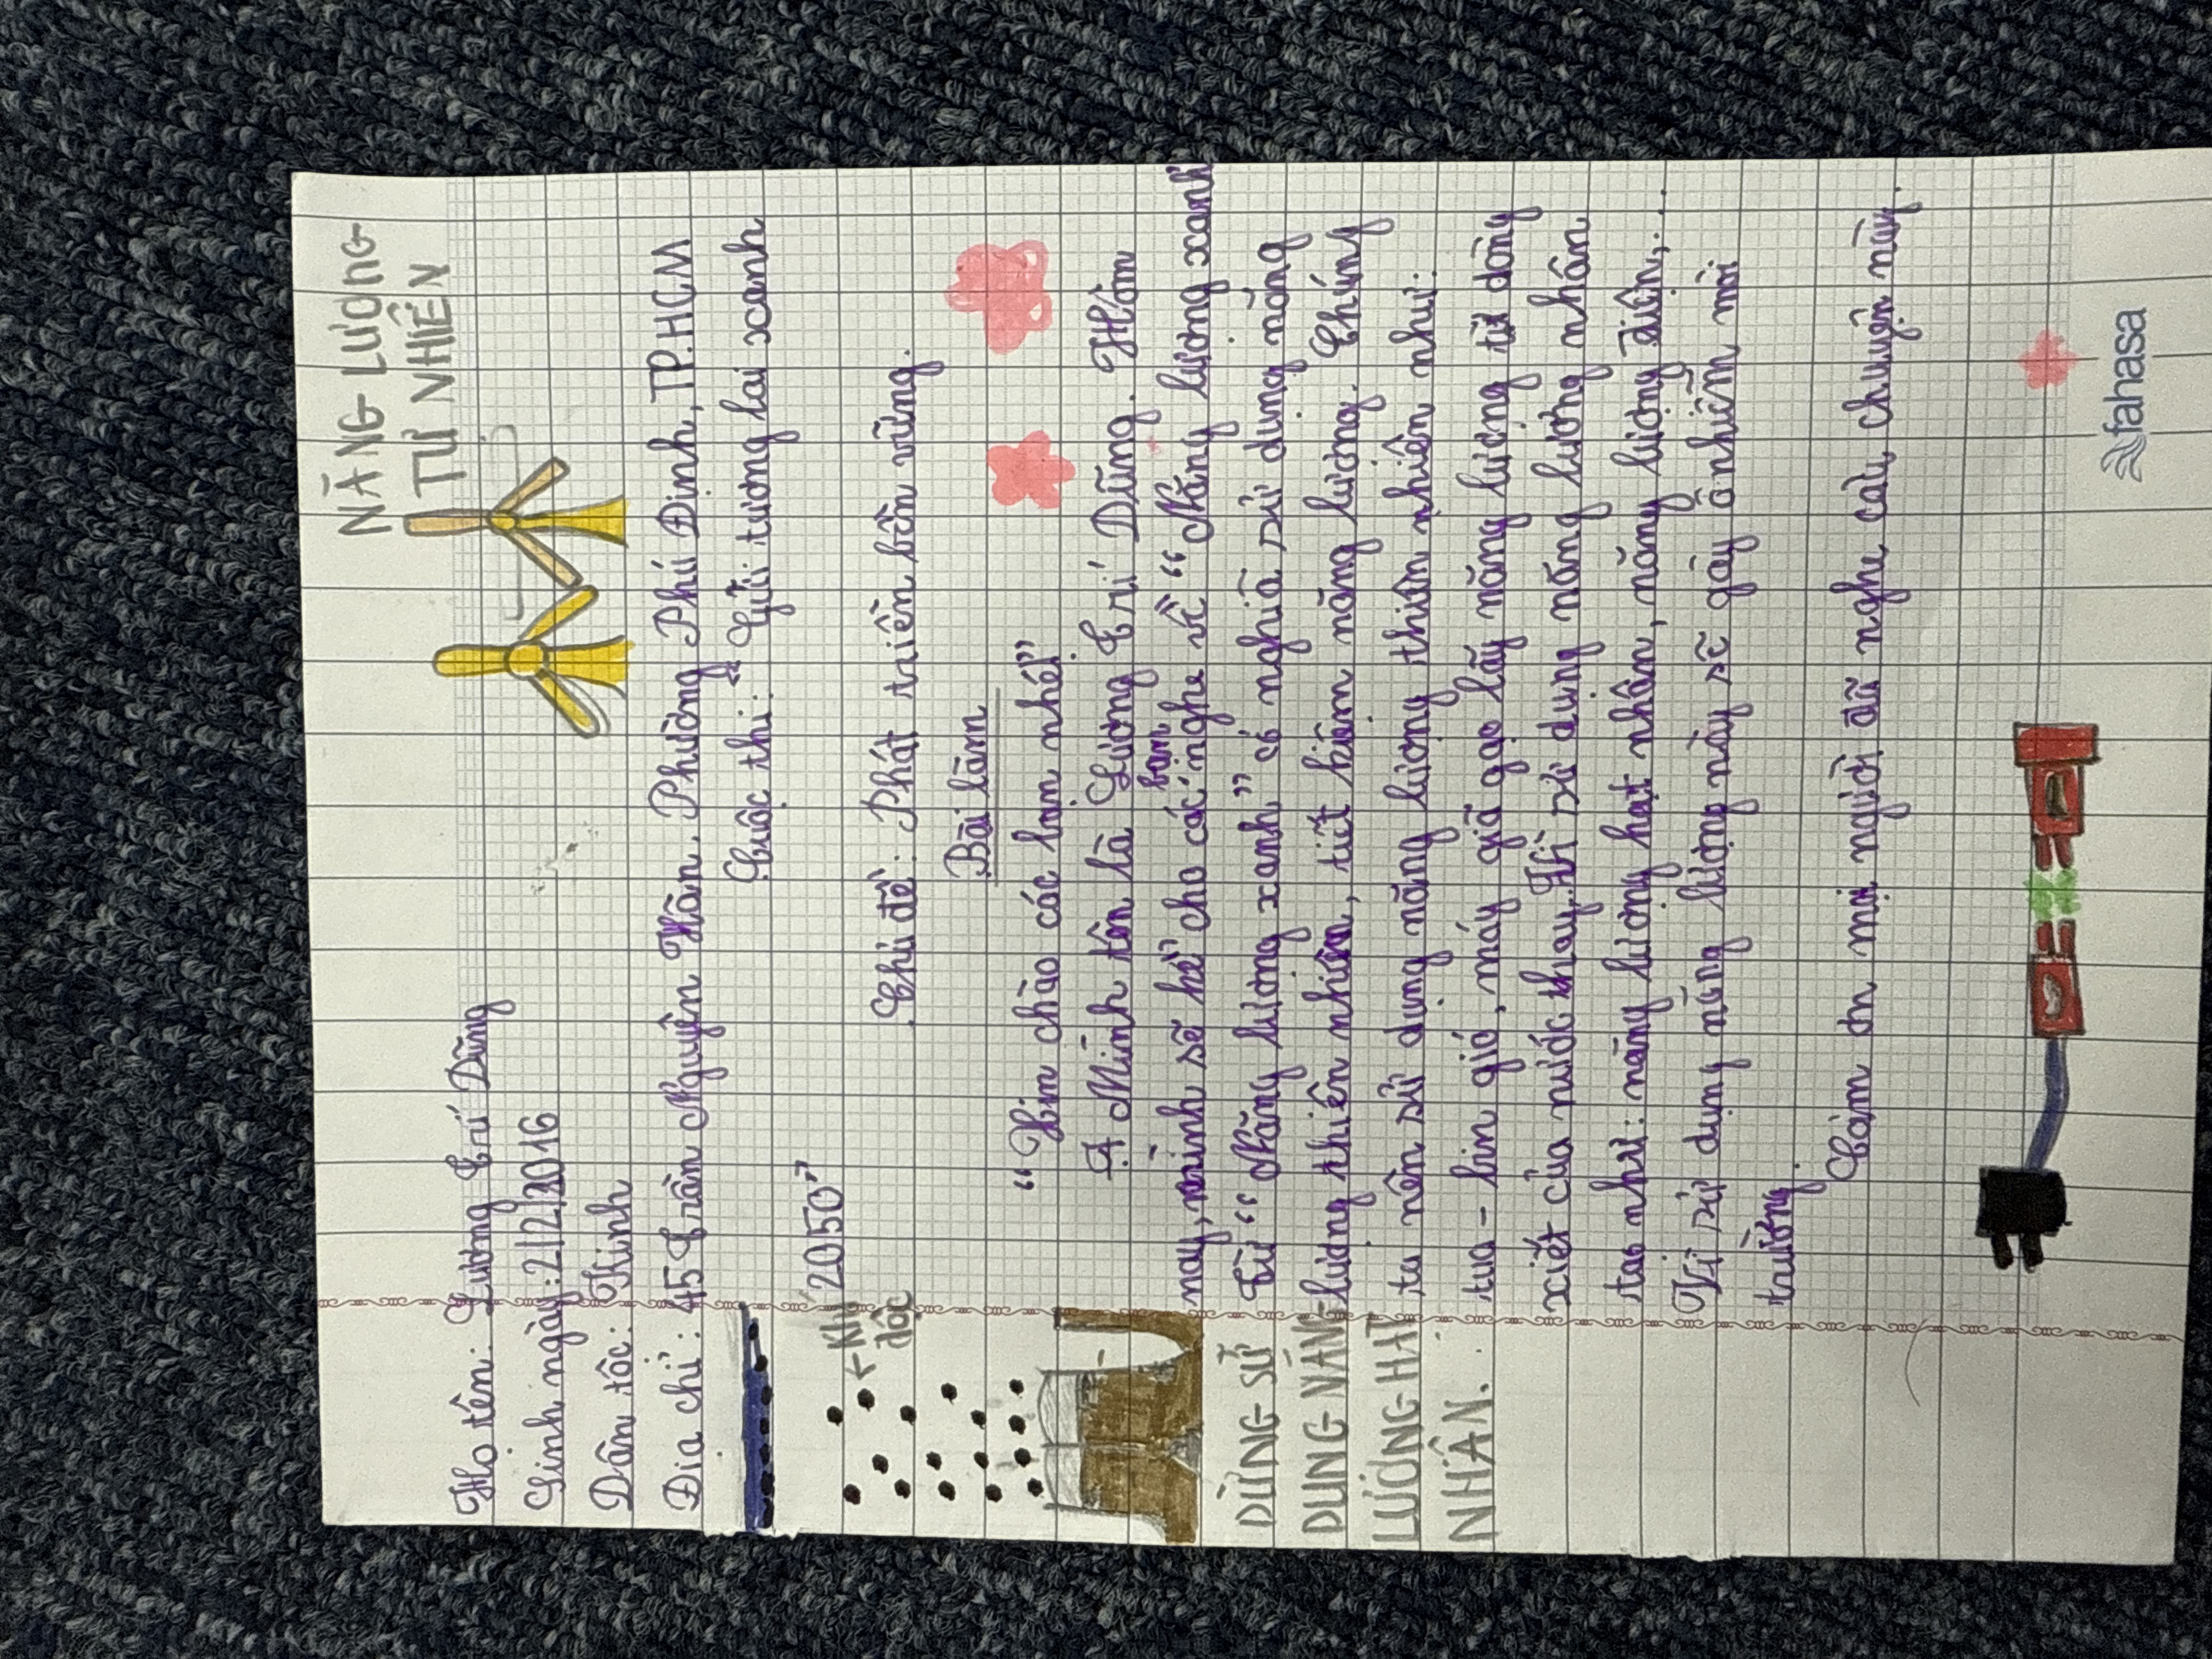 NĂNG LƯỢNG
TỰ NHIÊN
Họ tên: Lương Trí Dũng
Sinh ngày: 2/12/2016
Dân tộc: Kinh
Địa chỉ: 45 Trần Nguyên Hãn, Phường Phú Định, TP.HCM
Cuộc thi: "Gửi tương lai xanh
2050"
Khí
độc
Chủ đề: Phát triển bền vững.
Bài làm
"Xin chào các bạn nhé!"
Mình tên là Lương Trí Dũng. Hôm
nay, mình sẽ kể cho các bạn nghe về "Năng lượng xanh"
Từ "Năng lượng xanh" có nghĩa sử dụng năng
lượng thiên nhiên, tiết kiệm năng lượng. Chúng
ta nên sử dụng năng lượng thiên nhiên như:
tua-bin gió, máy giã gạo lấy năng lượng từ dòng
xiết của nước thay vì sử dụng năng lượng nhân
tạo như: năng lượng hạt nhân, năng lượng điện,...
Vì sử dụng năng lượng này sẽ gây ô nhiễm môi
trường.
Cảm ơn mọi người đã nghe câu chuyện này.
DỪNG SỬ
DỤNG NĂNG
LƯỢNG HẠT
NHÂN.
fahasa